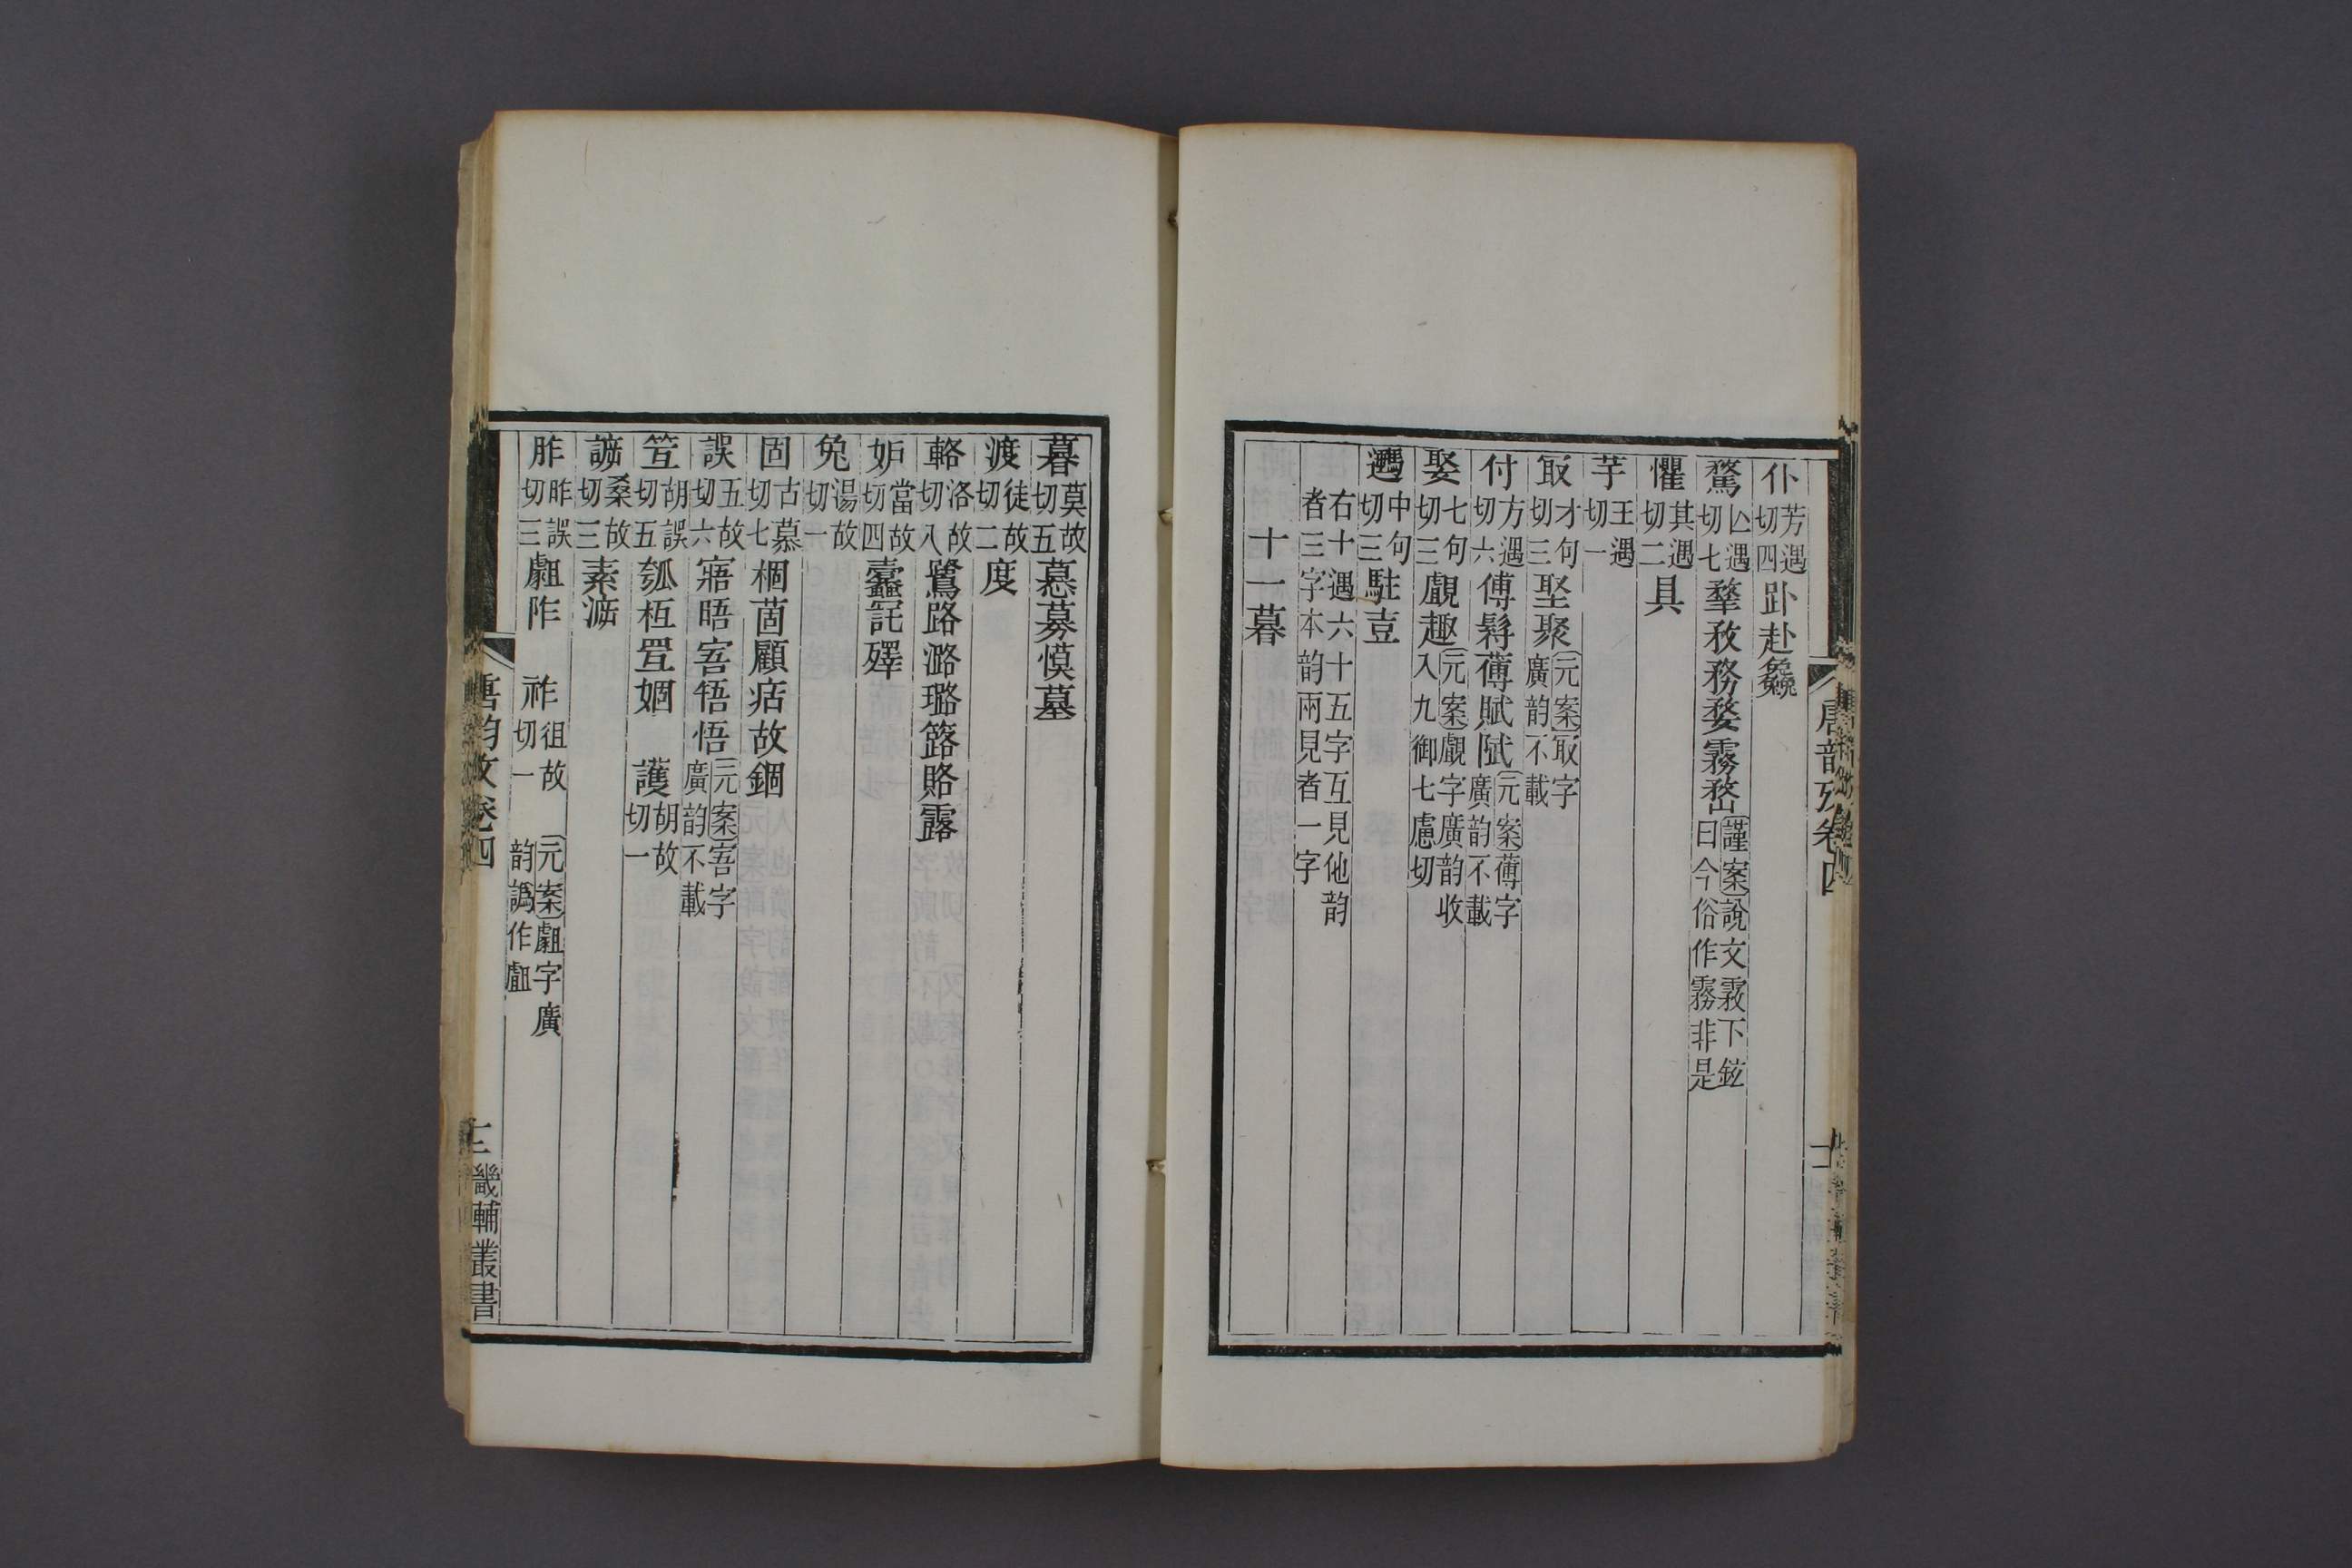 唐韵攷卷四
仆芳遇切四趴赴㲋
騖亡遇切七鞪敄務婺霧嵍謹案說文霚下鉉曰今俗作霧非是
懼其遇切二具
芋王遇切一
㝡才句切三堅聚元案㝡字廣韵不載
付方遇切六傅䰊䔰賦䟔元案䔰字廣韵不載
娶七句切三覰趣元案覰字廣韵收入九御七慮切
遇中句切三駐壴
右十遇六十五字互見他韵者三字本韵兩見者一字
十一暮
暮莫故切五慕募慔墓
渡徒故切二度
輅洛故切八鷺路潞璐簬賂露
妒當故切四蠹託殬
兔湯故切一
固古慕切七棝莔顧痁故錮
誤五故切六寤晤㝛啎悟元案㝛字廣韵不載
笠胡誤切五瓠枑罝婟 護胡故切一
謕桑故切三素㴑
胙昨誤切三䖕阼 祚徂故切一 元案䖕字廣韵譌作䖕
唐韵攷卷四
十二
畿輔叢書